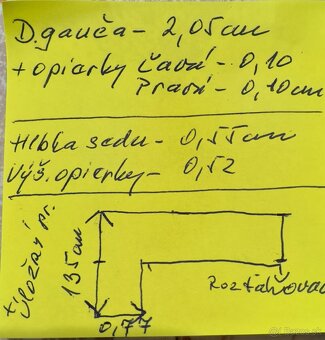 D.gauča - 2,05cm
+ opierky Ľavá - 0,10
Pravá - 0,10cm
Hĺbka sedu - 0,55cm
Výš. opierky - 0,52
+ Úložný pr.
135cm
0,77
Rozťahovac